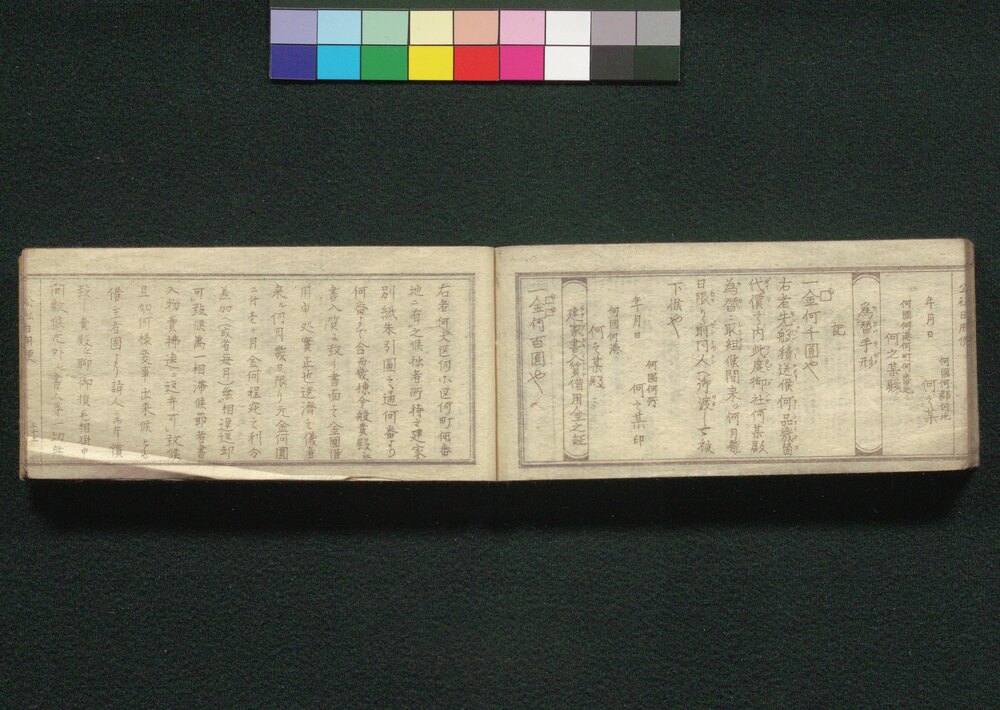 何國何郡何地
年月日 何之某
何國何港何町何番地
何之某殿
為替手形
記
一金何千圓也
右者先般積送候何品幾箇
代價之内此度御社何某殿
為替ニ取組候間来ル何月幾
日限リ前同人ヘ御渡シ被
下候也
何國何所
年月日 何之某印
何國何港
何之某殿
建家書入質借用金之証
一金何百圓也
右者何大区何小区何町何番
地ニ有之候拙者所持之建家
別紙朱引圖之通何番ヨリ
何番マテ合而幾棟今般貴殿ヘ
書入質ニ致シ書面之金圓借
用申処實正也返濟之儀者
来ル何月幾日限リ元金何圓
ニ付壱ヶ月金何程宛之利分
差加(或者毎月)無相違返却
可致候萬一相滞候節者書
入物賣拂速ニ返弁可致候
且如何様変事出来候とも
借主者固ヨリ請人ニ而弁償
致シ貴殿ヘ聊御損毛相掛申
間敷候尤外ニ書入等一切無